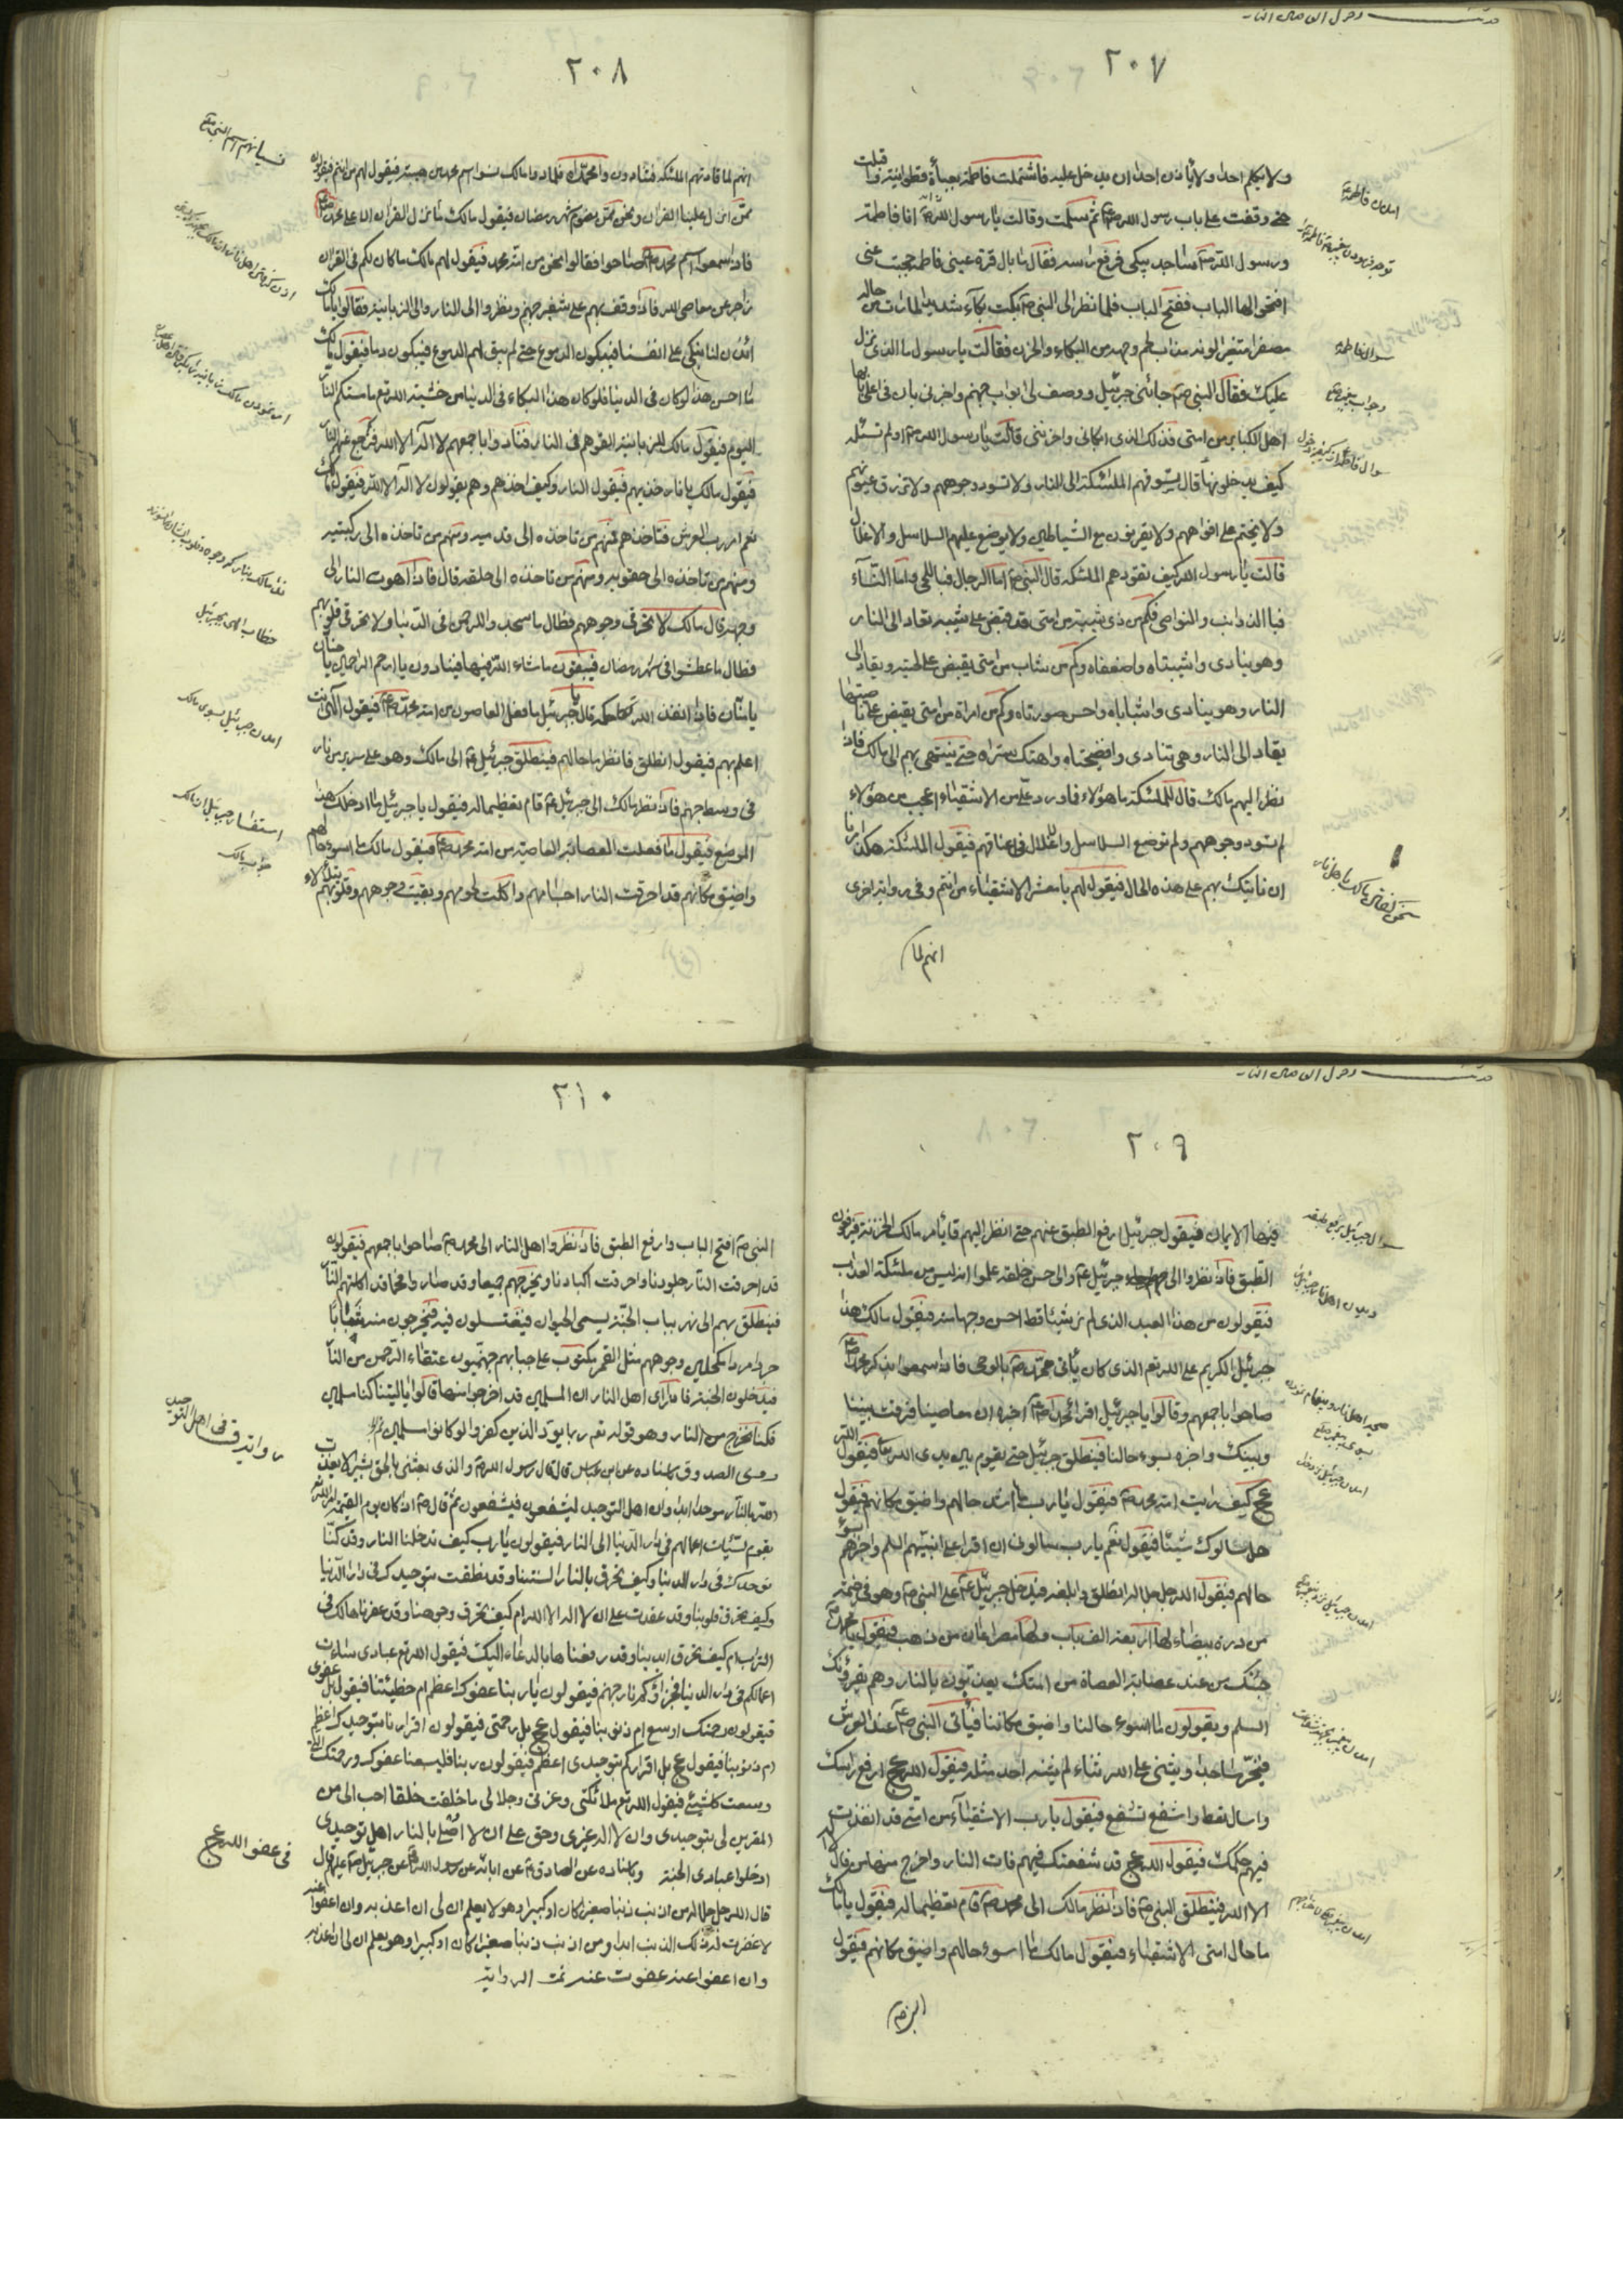 ٢٠٧
ولا يكلم احدا ولا يأذن احدا ان يدخل عليه فاشتملت فاطمة بعبأة قطوانية واقبلت
حتى وقفت على باب رسول الله ص ثم سلمت وقالت يا رسول الله انا فاطمة
ورسول الله ص ساجد يبكى فرفع راسه فقال ما بال قرة عينى فاطمة حجبت عنى
افتحوا لها الباب ففتح الباب فلما نظر الى النبى ص بكت بكآء شديدا لما رات من حاله
مصفرا متغيرا لونه مذاب لحم وجهه من البكاء والحزن فقالت يا رسول ما الذى نزل
عليك فقال النبى ص جائنى جبرئيل ووصف لى ابواب جهنم واخبرنى بان فى اعلى بابها
اهل الكباير من امتى فذلك الذى ابكانى واحزننى قالت يا رسول الله ص اولم تسئله
كيف يدخلونها قال يسوقهم الملئكة الى النار ولا تسود وجوههم ولا تزرق عيونهم
ولا يختم على افواههم ولا يقرنون مع الشياطين ولا يوضع عليهم السلاسل والاغلال
قالت يا رسول الله كيف تقودهم الملئكة قال النبى ص اما الرجال فباللحى واما النسآء
فبالذوائب والنواصى فكم من ذى شيبة من امتى قد قبض على شيبه يقاد الى النار
وهو ينادى واشيبتاه واضعفاه وكم من شاب من امتى يقبض على لحيته ويقاد الى
النار وهو ينادى واشباباه واحسن صورتاه وكم من امراة من امتى يقبض على ناصيتها
يقاد الى النار وهى تنادى وافضيحتاه واهتك ستراه حتى ينتهى بهم الى مالك فاذا
نظر اليهم مالك قال للملئكة ما هؤلاء فاورد على من الاشقياء اعجب من هؤلاء
لم تسود وجوههم ولم توضع السلاسل والاغلال فى اعناقهم فيقول الملئكة هكذا امرنا
ان ناتيك بهم على هذه الحال فيقول لهم يا معشر الاشقياء من انتم وفى رواية اخرى
انهم لما
سوال فاطمة
٢٠٨
انهم لما قادتهم الملئكة فنادون وامحمداه فلما راوا مالك نسوا اسم محمد من هيبته فيقول لهم من انتم فيقولون
ممن انزل علينا القران ونحن ممن يصوم شهر رمضان فيقول مالك ما نزل القران الا على محمد
فاذا سمعوا اسم محمد ص صاحوا فقالوا نحن من امة محمد فيقول لهم مالك ما كان لكم فى القران
زاجر عن معاصى الله فاذا وقف بهم على شفير جهنم ونظروا الى النار والى الزبانية فقالوا يا مالك
ائذن لنا نبكى على انفسنا فيبكون الدموع حتى لم يبق لهم الدموع فيبكون دما فيقول مالك
ما احسن هذا لو كان فى الدنيا فلو كان هذا البكاء فى الدنيا من خشية الله تع ما مستكم النار
اليوم فيقول مالك للزبانية القوهم فى النار فنادوا باجمعهم لا اله الا الله فترجع عنهم النار
فيقول مالك يا نار خذيهم فيقول النار وكيف اخذهم وهم يقولون لا اله الا الله فيقول مالك
نعم امر رب العرش فتاخذهم فمنهم من تاخذه الى قدميه ومنهم من تاخذه الى ركبتيه
ومنهم من تاخذه الى حقويه ومنهم من تاخذه الى حلقه قال فاذا اهوت النار الى
وجهه قال مالك لا تحرقى وجوههم فطال ما سجدوا للرحمن فى الدنيا ولا تحرقى قلوبهم
فطال ما عطشوا فى شهر رمضان فيبقون ما شاء الله فيها فينادون يا ارحم الراحمين يا حنان
يا منان فاذا انفذ الله تع حكمه قال يا جبرئيل ما فعل العاصون من امة محمد ص فيقول الهى انت
اعلم بهم فيقول انطلق فانظر ما حالهم فينطلق جبرئيل ع الى مالك وهو على سرير من نار
فى وسط جهنم فاذا نظر مالك الى جبرئيل ع قام تعظيما له فيقول يا جبرئيل ما ادخلك هذا
الموضع فيقول ما فعلت العصابة العاصية من امة محمد ص فيقول مالك ما اسوء حالهم
واضيق مكانهم قد احرقت النار اجسامهم واكلت لحومهم وبقيت وجوههم وقلوبهم يتلألاء
خطاب الهى بجبرئيل
جواب مالك
٢٠٩
فيها الايمان فيقول جبرئيل ارفع الطبق عنهم حتى انظر اليهم فيأمر مالك الخزنة فيرفعون
الطبق فاذا نظروا الى جبرئيل ع والى حسن خلقه علموا انه ليس من ملئكة العذاب
فيقولون من هذا العبد الذى لم نر شيئا قط احسن وجها منه فيقول مالك هذا
جبرئيل الكريم على الله تع الذى كان يأتى محمد ص بالوحى فاذا سمعوا بذكر محمد
صاحوا باجمعهم وقالوا يا جبرئيل اقرا محمدا ص اخبره ان معاصينا فرقت بيننا
وبينك واخبره بسوء حالنا فينطلق جبرئيل حتى يقوم بين يدى الله تعالى فيقول الله
عج كيف رايت امة محمد ص فيقول يا رب ما اشد حالهم واضيق مكانهم فيقول
هل سالوك شيئا فيقول نعم يا رب سالونى ان اقرا على نبيهم السلم واخبرهم بسوء
حالهم فيقول الله جل جلاله انطلق وابلغه فيدخل جبرئيل ع على النبى ص وهو فى خيمة
من درة بيضاء لها اربعة الف باب ولها مصراعان من ذهب فيقول يا محمد
جئتك من عند عصابة العصاة من امتك يعذبون بالنار وهم يقرؤنك
السلم ويقولون ما اسوء حالنا واضيق مكاننا فيأتى النبى ص عند العرش
فيخر ساجدا ويثنى على الله ثناء لم يثنه احد مثله فيقول الله عج ارفع راسك
واسال تعط واشفع تشفع فيقول يا رب الاشقيآء من امتى قد انفذت
فيهم حكمك فيقول الله عج قد شفعتك فيهم فات النار واخرج منها من قال لا اله
الا الله فينطلق النبى ص فاذا نظر مالك الى محمد ص قام تعظيما له فيقول يا مالك
ما حال امتى الاشقياء فيقول مالك ما اسوء حالهم واضيق مكانهم فيقول
النبى ص
٢١٠
النبى ص افتح الباب وارفع الطبق فاذا نظروا اهل النار الى محمد ص صاحوا باجمعهم فيقولون
قد احرقت النار جلودنا واحرقت اكبادنا ويخرجهم جميعا وقد صاروا فحما قد اكلتهم النار
فينطلق بهم الى نهر بباب الجنة يسمى الحيوان فيغتسلون فيه فيخرجون منه شبابا
جردا مردا مكحلين وجوههم مثل القمر مكتوب على جباههم جهنميون عتقاء الرحمن من النار
فيدخلون الجنة فاذا راى اهل النار ان المسلمين قد اخرجوا منها قالوا يا ليتنا كنا مسلمين
فكنا نخرج من النار وهو قوله تع ربما يود الذين كفروا لو كانوا مسلمين
روى الصدوق باسناده عن ابن عباس قال قال رسول الله ص والذى بعثنى بالحق بشيرا لا يعذب
الله بالنار موحدا ابدا وان اهل التوحيد ليشفعون فيشفعون ثم قال ص اذا كان يوم القيمة امر الله
بقوم سيئات اعمالهم فى دار الدنيا الى النار فيقولون يا رب كيف تدخلنا النار وقد كنا
نوحدك فى دار الدنيا وكيف تحرق بالنار السنتنا وقد نطقت بتوحيدك فى دار الدنيا
وكيف تحرق قلوبنا وقد عقدت على ان لا اله الا الله ام كيف تحرق وجوهنا وقد عفرناها لك فى
التراب ام كيف تحرق ايدينا وقد رفعناها بالدعاء اليك فيقول الله تع عبادى ساءت
اعمالكم فى دار الدنيا فجزاؤكم نار جهنم فيقولون يا ربنا عفوك اعظم ام خطيئتنا فيقول بل عفوى
فيقولون رحمتك اوسع ام ذنوبنا فيقول عج بل رحمتى فيقولون اقرارنا بتوحيدك اعظم
ام ذنوبنا فيقول عج بل اقراركم بتوحيدى اعظم فيقولون ربنا فليسعنا عفوك ورحمتك التى
وسعت كل شيئى فيقول الله تع ملائكتى وعزتى وجلالى ما خلقت خلقا احب الى من
المقرين لى بتوحيدى وان لا اله غيرى وحق على ان لا اصلى بالنار اهل توحيدى
ادخلوا عبادى الجنة وباسناده عن الصادق ع عن ابائه عن رسول الله ص عن جبرئيل ع قال
قال الله جل جلاله من اذنب ذنبا صغيرا كان او كبيرا وهو لا يعلم ان لى ان اعذبه وان اعفو عنه
لا غفرت له ذلك الذنب ابدا ومن اذنب ذنبا صغيرا كان او كبيرا وهو يعلم ان لى ان اعذبه
وان اعفوا عنه عفوت عنه تمت الرواية
فى عفو الله عج